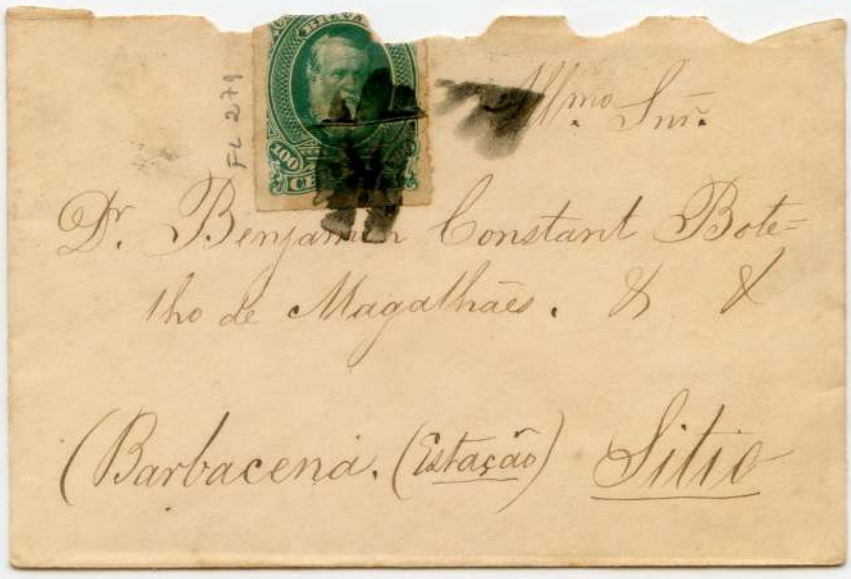 BRAZ
100
CE
FL 279
Illmo. Snr.
Dr. Benjamin Constant Bote=
lho de Magalhães. & &
(Barbacena. (Estação) Sitio